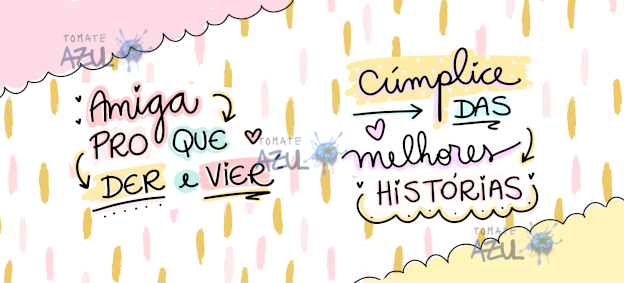 TOMATE
AZUL
Amiga
PRO QUE
DER e VIER
TOMATE
AZUL
Cúmplice
DAS
melhores
HISTÓRIAS
TOMATE
AZUL